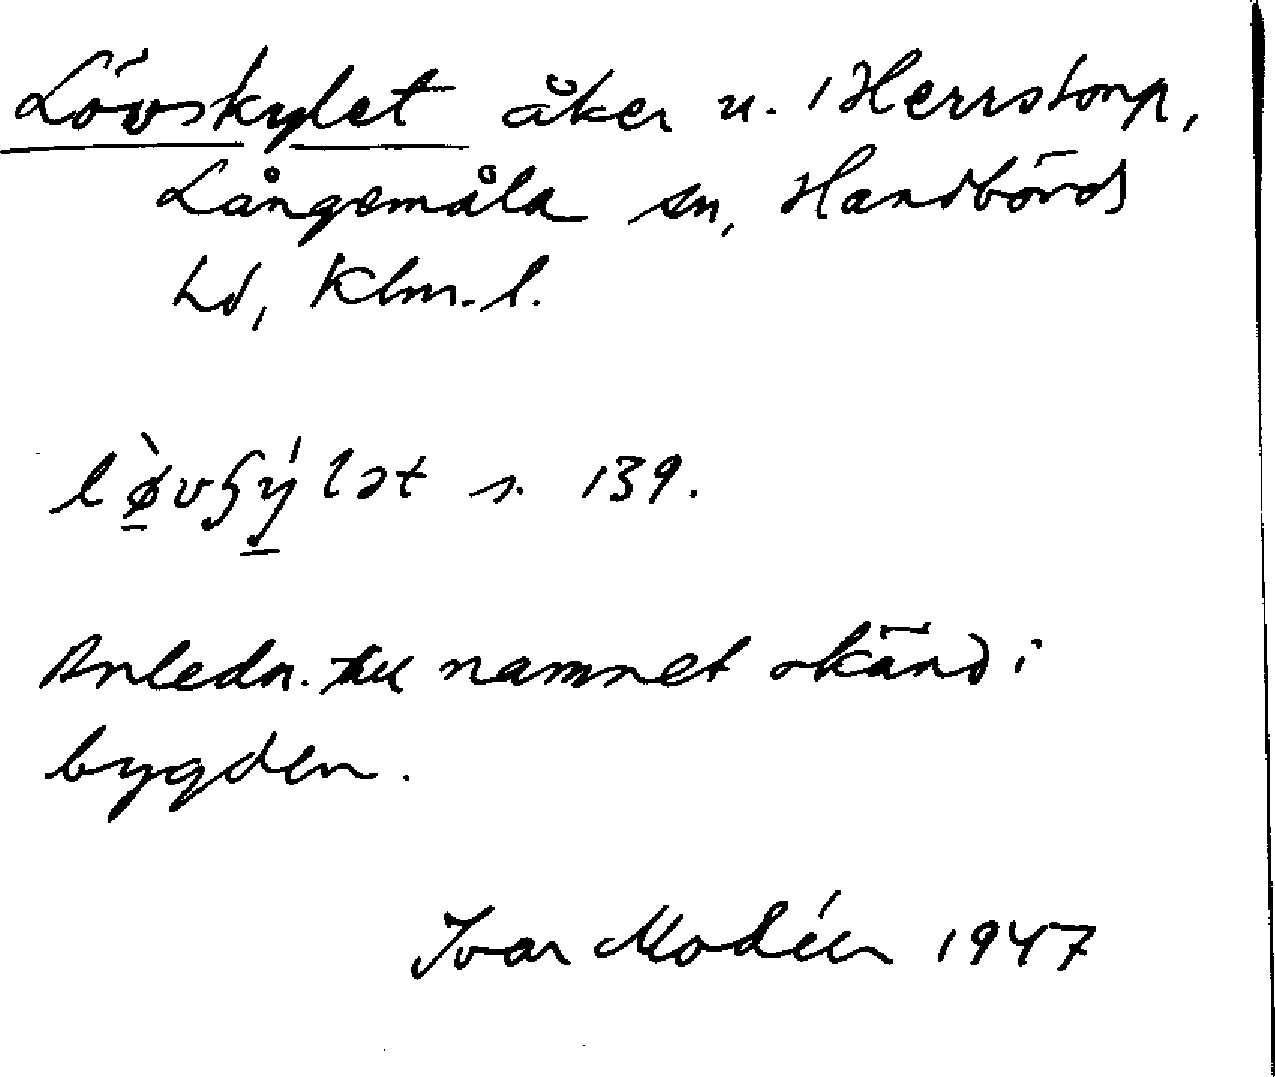 Lövskylet åker u. Herrstorp,
Långemåla sn, Handbörds
hd, Klm. l.
lø̀vʃýlət s. 139.
Anledn. till namnet okänd i
bygden.
Ivar Modéer 1947